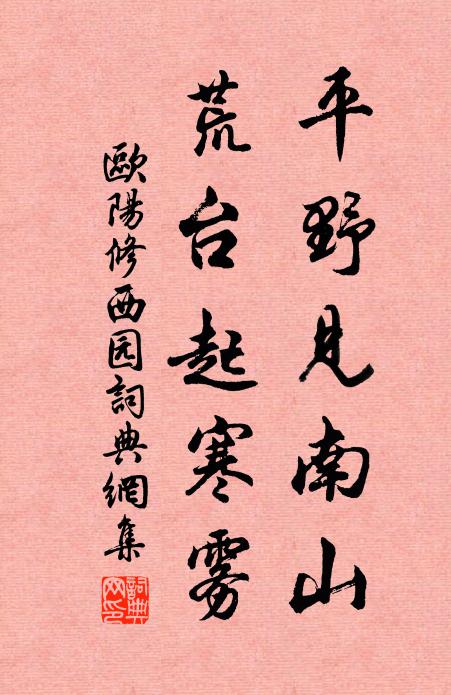 平野見南山
荒台起寒雾
歐陽修西园詞典網集
詞典网印